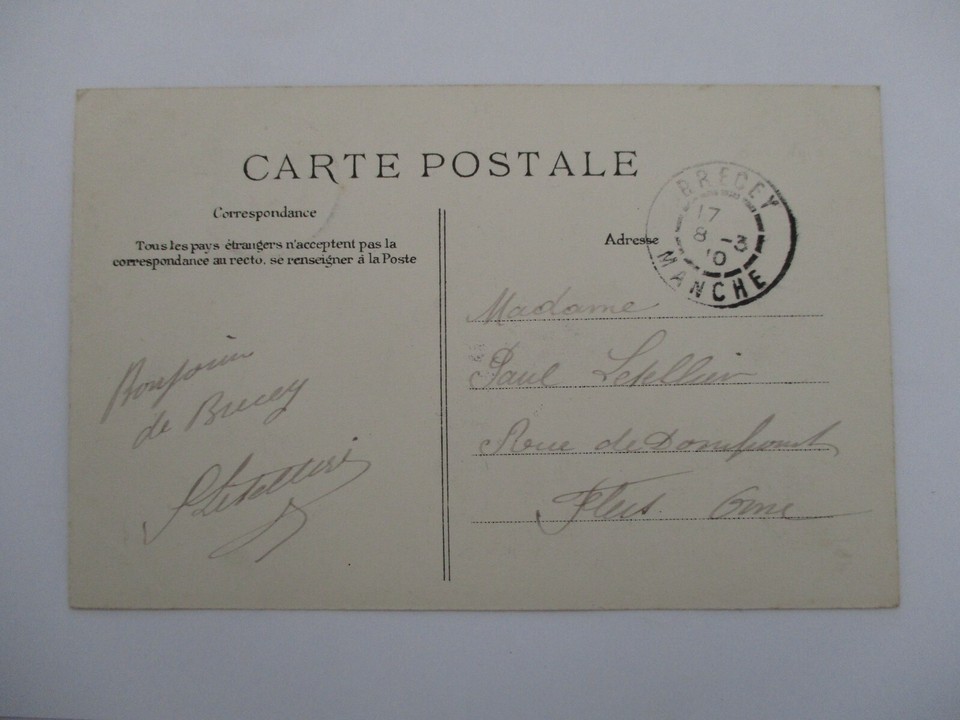 CARTE POSTALE
Correspondance
Tous les pays étrangers n'acceptent pas la
correspondance au recto, se renseigner à la Poste
Bonjour
de Brecey
Letellier
Adresse
BRECEY
17
8 -3
10
MANCHE
Madame
Paul Letellier
Rue de Domfront
Flers. Orne